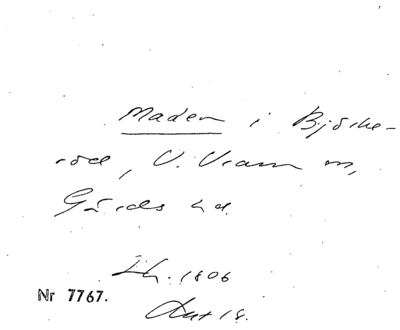 Maden i Björke-
röd, V. Vram sn,
Gärds hd.
Lh. 1806
Nr 7767.
Akt 18.